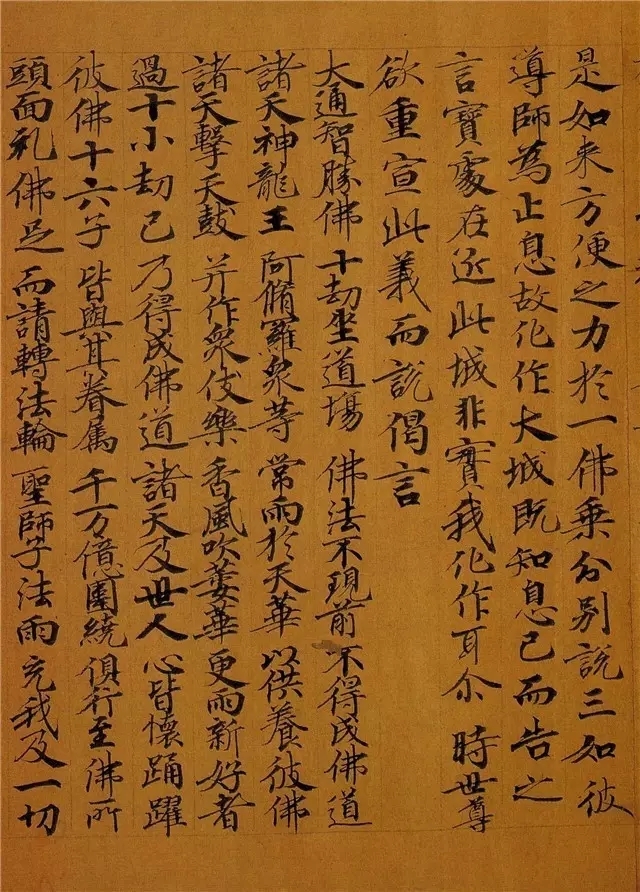 是如来方便之力於一佛乗分別說三如彼
導師為止息故化作大城既知息已而告之
言寶處在近此城非寶我化作耳尒時世尊
欲重宣此義而說偈言
大通智勝佛 十劫坐道場 佛法不現前 不得成佛道
諸天神龍王 阿脩羅衆等 常雨於天華 以供養彼佛
諸天擊天鼓 并作衆伎樂 香風吹萎華 更雨新好者
過十小劫已 乃得成佛道 諸天及世人 心皆懷踊躍
彼佛十六子 皆與其眷属 千万億圍繞 俱行至佛所
頭面礼佛足 而請轉法輪 聖師子法雨 充我及一切